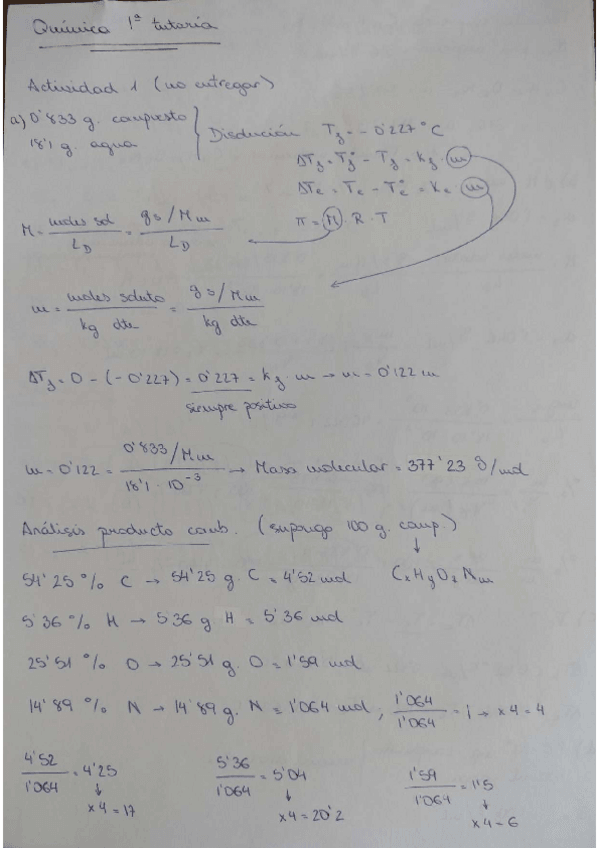 Química 1ª tutoría
Actividad 1 (no entregar)
a) 0'833 g. compuesto
18'1 g. agua
Disolución Tf = - 0'227 °C
ΔTf = Tf° - Tf = Kf · m
ΔTe = Te - Te° = Ke · m
π = M · R · T
M = moles sol / LD = gs/Mm / LD
m = moles soluto / kg dte = gs/Mm / kg dte
ΔTf = 0 - (- 0'227) = 0'227 = Kf · m → m = 0'122 m
siempre positivo
m = 0'122 = 0'833/Mm / 18'1 · 10⁻³ → Masa molecular = 377'23 g/mol
Análisis producto comb. (supongo 100 g. comp.)
↓
54'25 % C → 54'25 g. C = 4'52 mol CxHyOzNm
5'36 % H → 5'36 g H = 5'36 mol
25'51 % O → 25'51 g. O = 1'59 mol
14'89 % N → 14'89 g. N = 1'064 mol, 1'064 / 1'064 = 1 → x4 = 4
4'52 / 1'064 = 4'25 5'36 / 1'064 = 5'04 1'59 / 1'064 = 1'5
↓ ↓ ↓
x4 = 17 x4 = 20'2 x4 = 6